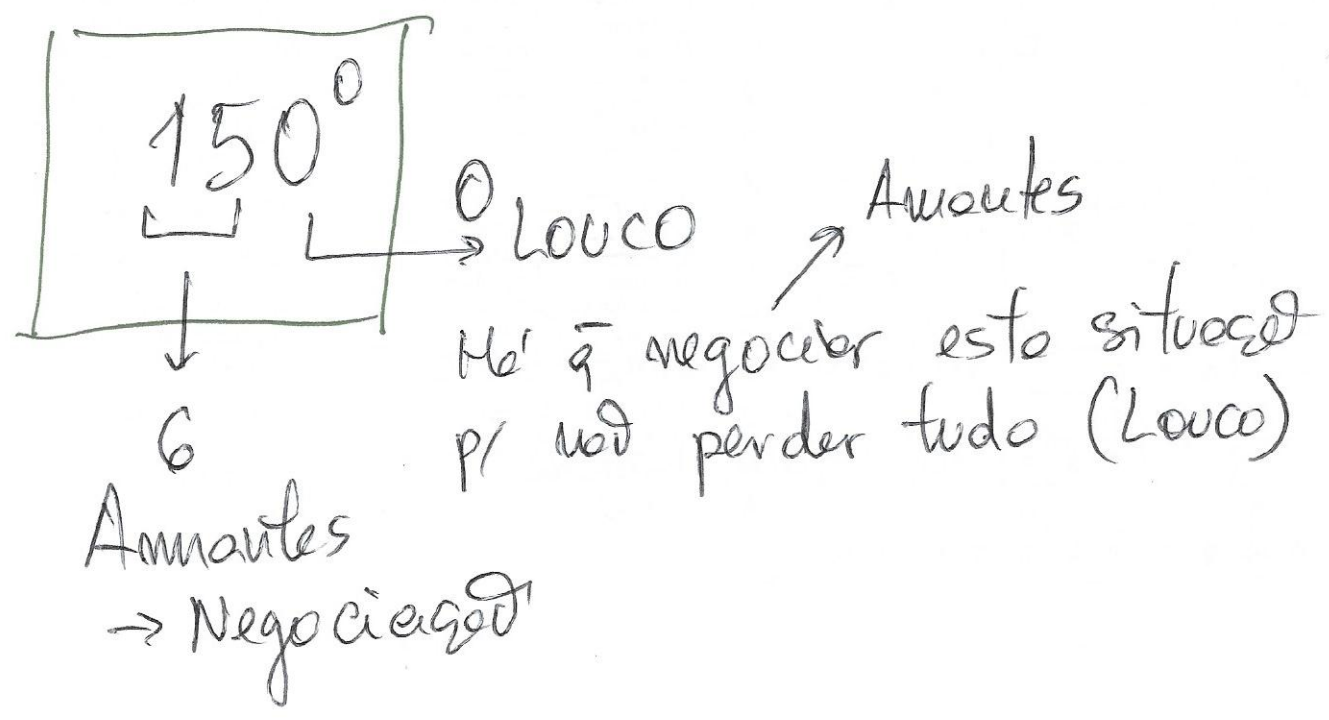 150°
0
Louco
Amantes
Há q̄ negociar esta situação
p/ não perder tudo (Louco)
6
Amantes
→ Negociação